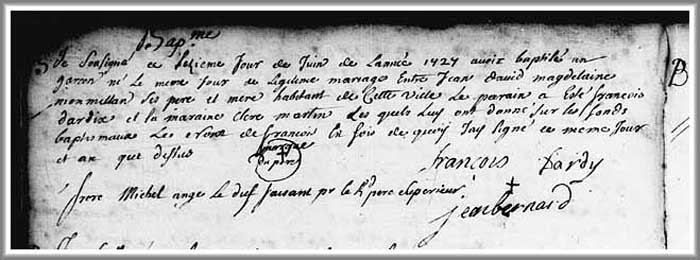 Bap.me
Je Soussigné ce seizieme Jour de Juin de Lannée 1727 avoir baptisé un
garcon né Le meme Jour de Legitime mariage Entre Jean david magdelaine
monmellan Ses pere et mere habitant de Cette ville Le parain a Esté francois
dardix et la maraine Clere martin Les quels Luy ont donné sur les fonds
baptismaux Le de francois En fois de quoy Jay signé ce meme Jour
et an que dessus
marque
du pere
francois Dardy
frere Michel ange le duf faisant pr le R.d pere Superieur
Jean bernard
B